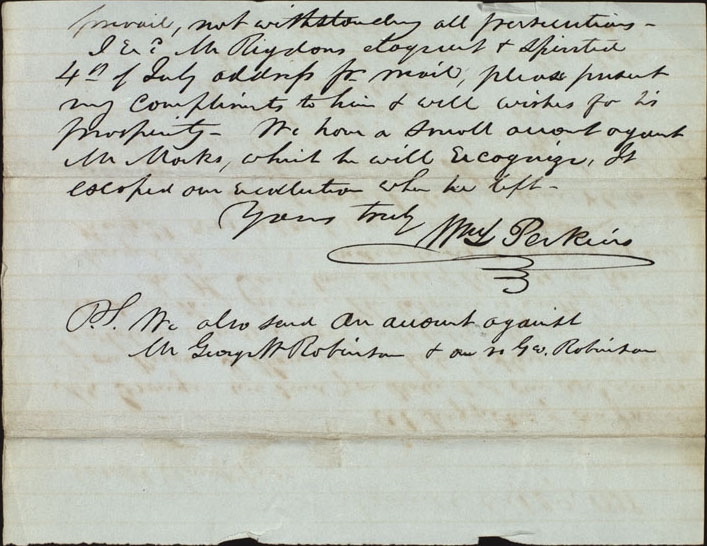 prevail, notwithstanding all persecutions –
I Recd Mr Rigdons eloquent & spirited
4th of July address for mail, please present
my compliments to him & well wishes for his
prosperity – We have a small account against
Mr Marks, which he will recognize, It
escaped our recollection when he left –
Yours truly
Wm L Perkins
P.S. We also send an account against
Mr George W Robinson & Geo. Robinson